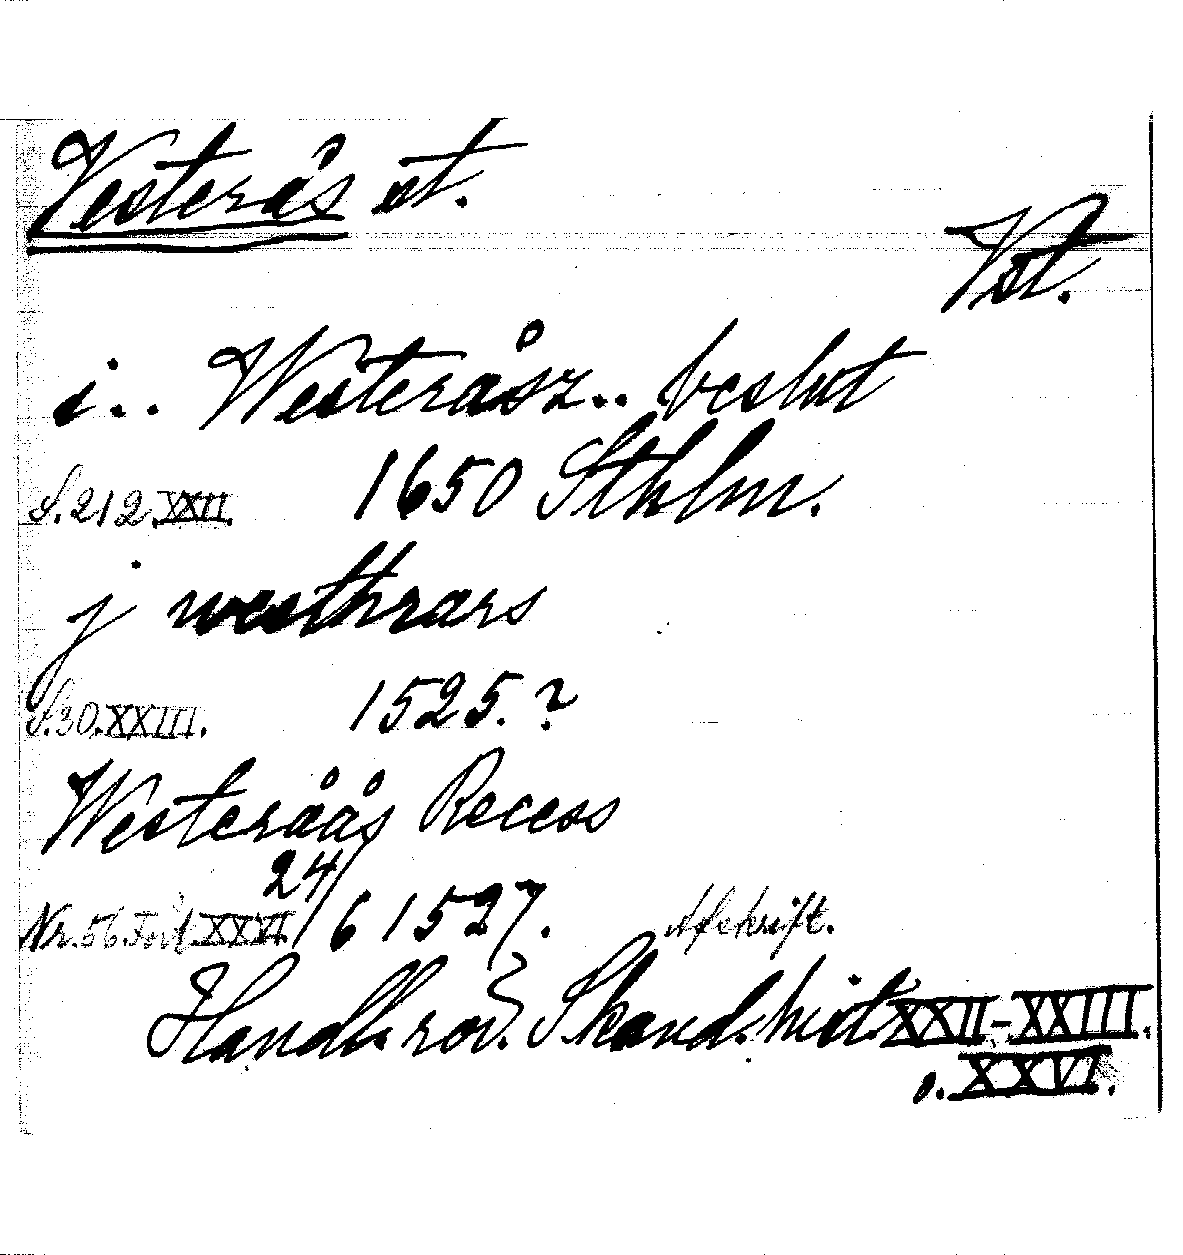 Vesterås st.
Vst.
i.. Westeråsz.. beslut
S. 212. XXII. 1650 Sthlm.
j westhrars
S. 30. XXIII. 1525.?
Westeråås Recess
Nr. 56. XXVI. 24/6 1527. Afskrift.
Handl. rör. Skand. hist. XXII-XXIII.
o. XXVI.